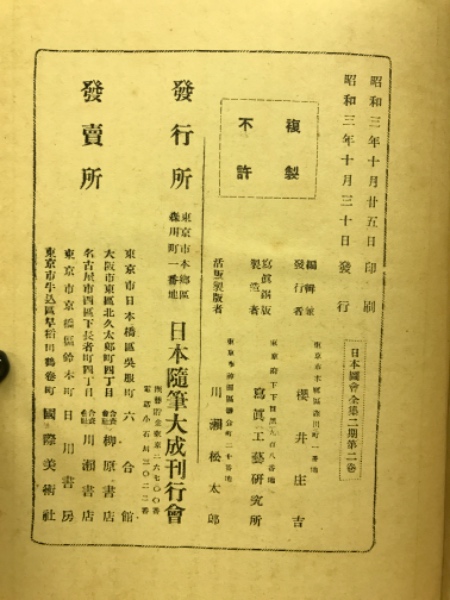 昭和三年十月廿五日印刷
昭和三年十月三十日發行
日本圖會全集二期第二卷
複製
不許
編輯兼
發行者
東京市本鄕區森川町一番地
櫻井庄吉
寫眞銅版
製造者
東京府下下目黑八百八番地
寫眞工藝硏究所
活版製版者
川瀨松太郞
發行所
東京市本鄕區
森川町一番地
日本隨筆大成刊行會
電話小石川三〇二二番
發賣所
東京市日本橋區吳服町
六合館
大阪市東區北久太郞町四丁目
合資會社
柳原書店
名古屋市西區下長者町四丁目
合資會社
川瀨書店
東京市京橋區鈴木町
日川書房
東京市牛込區早稻田鶴卷町
國際美術社